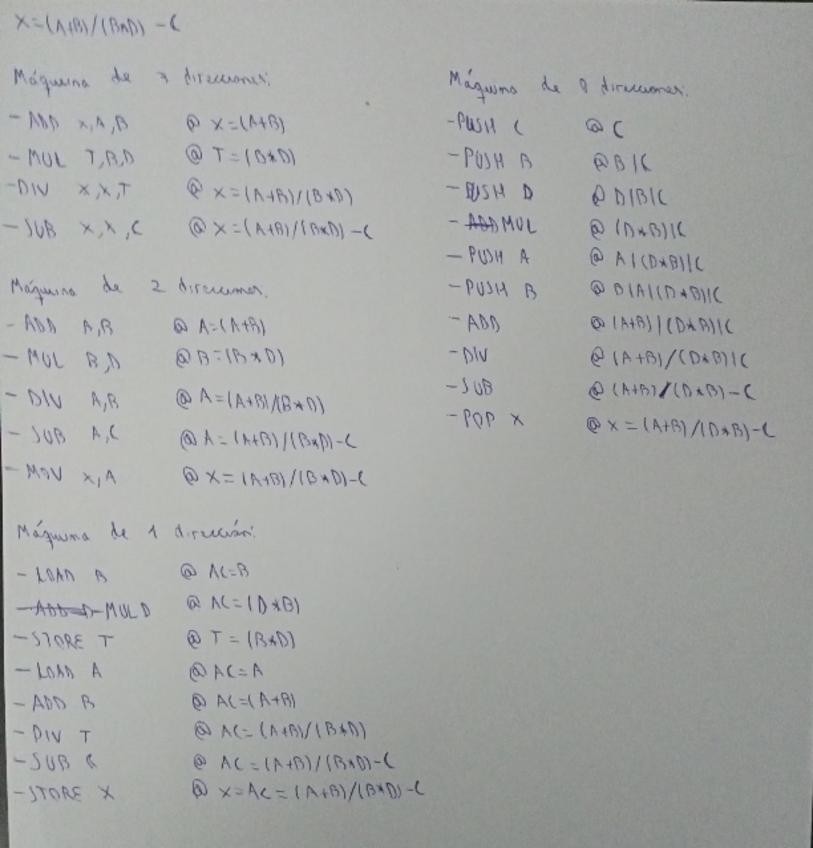 X=(A+B)/(B*D) - C
Máquina de 3 direcciones:
- ADD X,A,B @ X=(A+B)
- MUL T,B,D @ T=(B*D)
- DIV X,X,T @ X=(A+B)/(B*D)
- SUB X,X,C @ X=(A+B)/(B*D)-C
Máquina de 2 direcciones.
- ADD A,B @ A=(A+B)
- MUL B,D @ B=(B*D)
- DIV A,B @ A=(A+B)/(B*D)
- SUB A,C @ A=(A+B)/(B*D)-C
- MOV X,A @ X=(A+B)/(B*D)-C
Máquina de 1 dirección:
- LOAD B @ AC=B
- ADD D - MUL D @ AC=(D*B)
- STORE T @ T=(B*D)
- LOAD A @ AC=A
- ADD B @ AC=(A+B)
- DIV T @ AC=(A+B)/(B*D)
- SUB C @ AC=(A+B)/(B*D)-C
- STORE X @ X=AC=(A+B)/(B*D)-C
Máquina de 0 direcciones:
- PUSH C @ C
- PUSH B @ B|C
- PUSH D @ D|B|C
- ADD MUL @ (D*B)|C
- PUSH A @ A|(D*B)|C
- PUSH B @ B|A|(D*B)|C
- ADD @ (A+B)|(D*B)|C
- DIV @ (A+B)/(D*B)|C
- SUB @ (A+B)/(D*B)-C
- POP X @ X=(A+B)/(D*B)-C